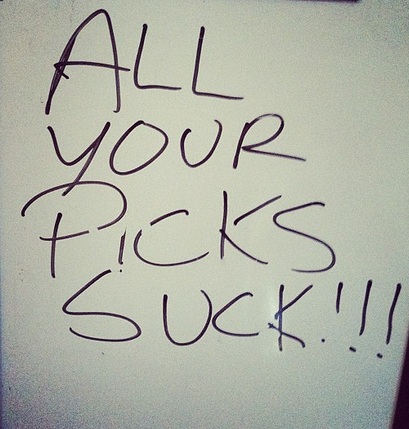 ALL
YOUR
PiCKS
SUCK!!!